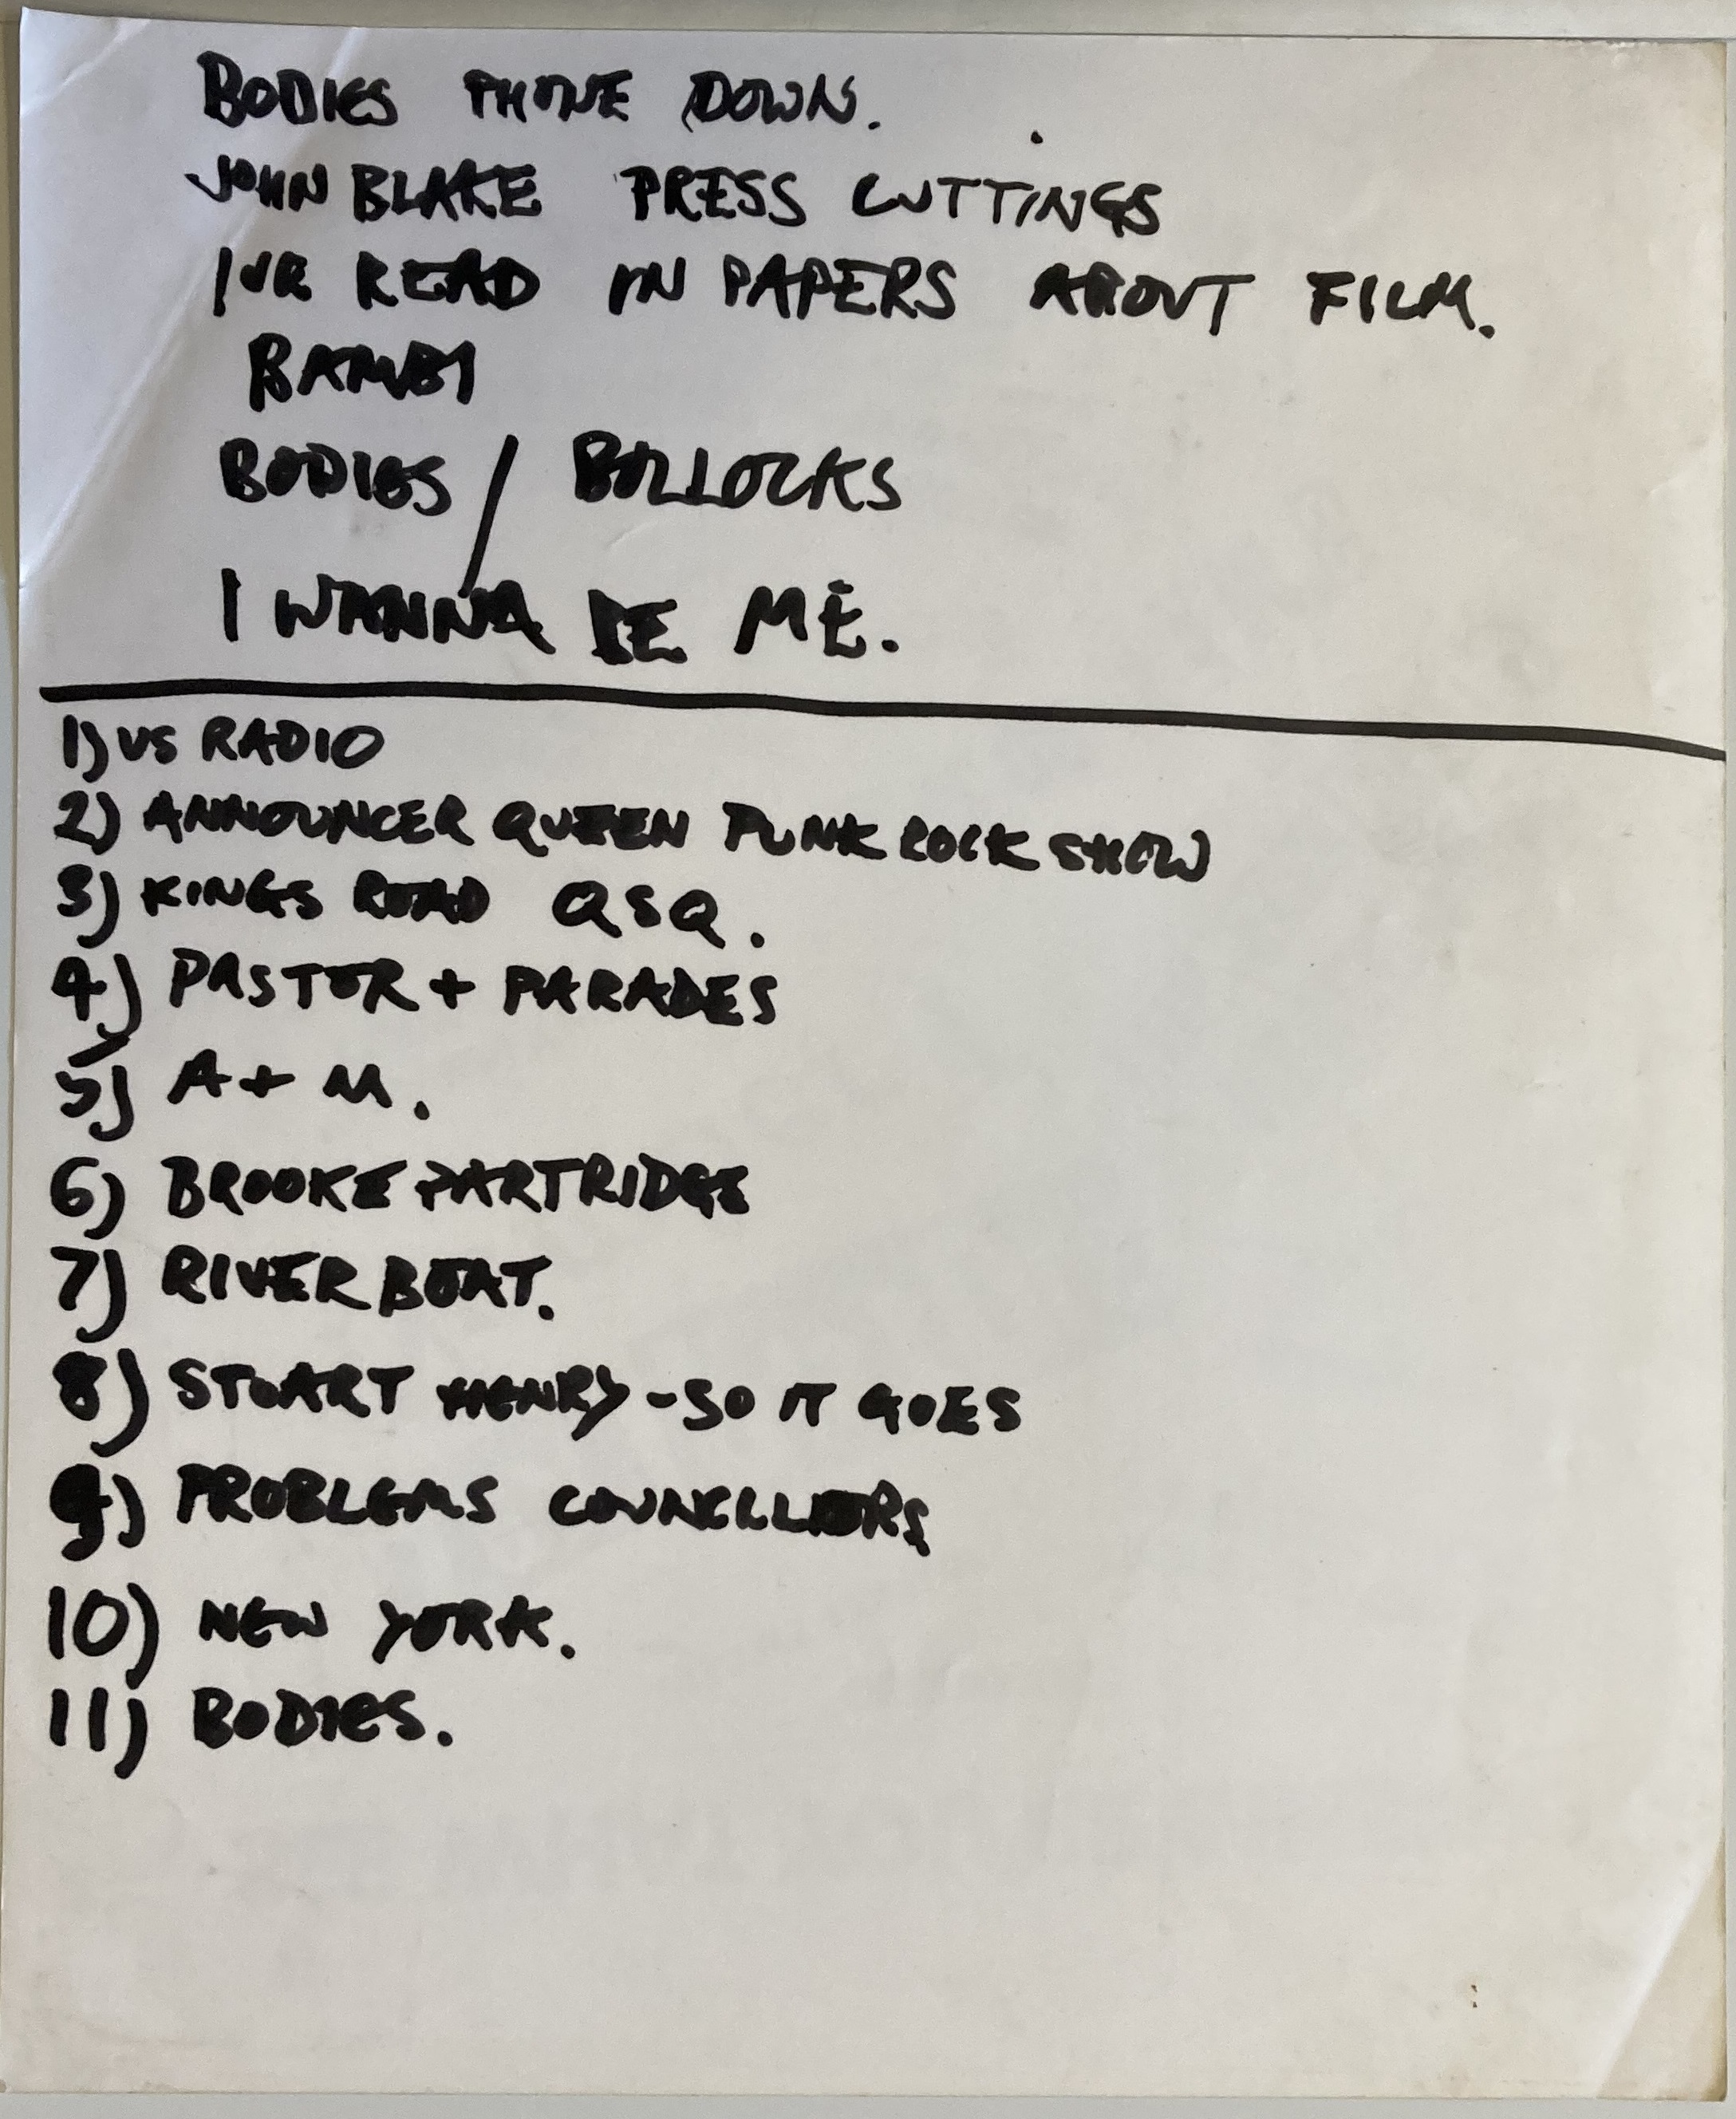 BODIES PHONE DOWN.
JOHN BLAKE PRESS CUTTINGS
READ IN PAPERS ABOUT FILM.
BAMBI
BODIES / BOLLOCKS
I WANNA BE ME.
1) US RADIO
2) ANNOUNCER QUEEN PUNK ROCK SHOW
3) KINGS ROAD QSQ.
4) PASTOR + PARADES
5) A + M.
6) BROOKE PARTRIDGE
7) RIVER BOAT.
8) STUART HENRY - SO IT GOES
9) PROBLEMS COUNCILLORS
10) NEW YORK.
11) BODIES.